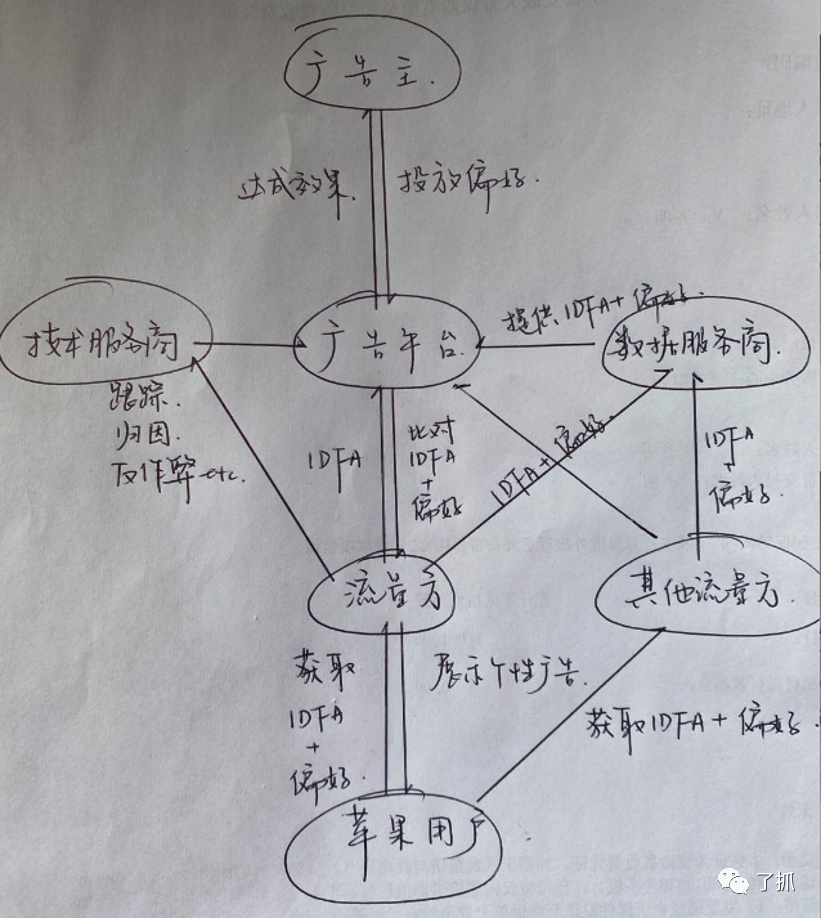 广告主.
达成效果.
投放偏好.
提供IDFA+偏好.
技术服务商
广告平台.
数据服务商.
跟踪.
归因.
反作弊etc.
IDFA
比对
IDFA
+
偏好
IDFA+偏好.
IDFA
+
偏好.
流量方
其他流量方.
获取
IDFA
+
偏好.
展示个性广告.
获取IDFA+偏好.
苹果用户.
了抓